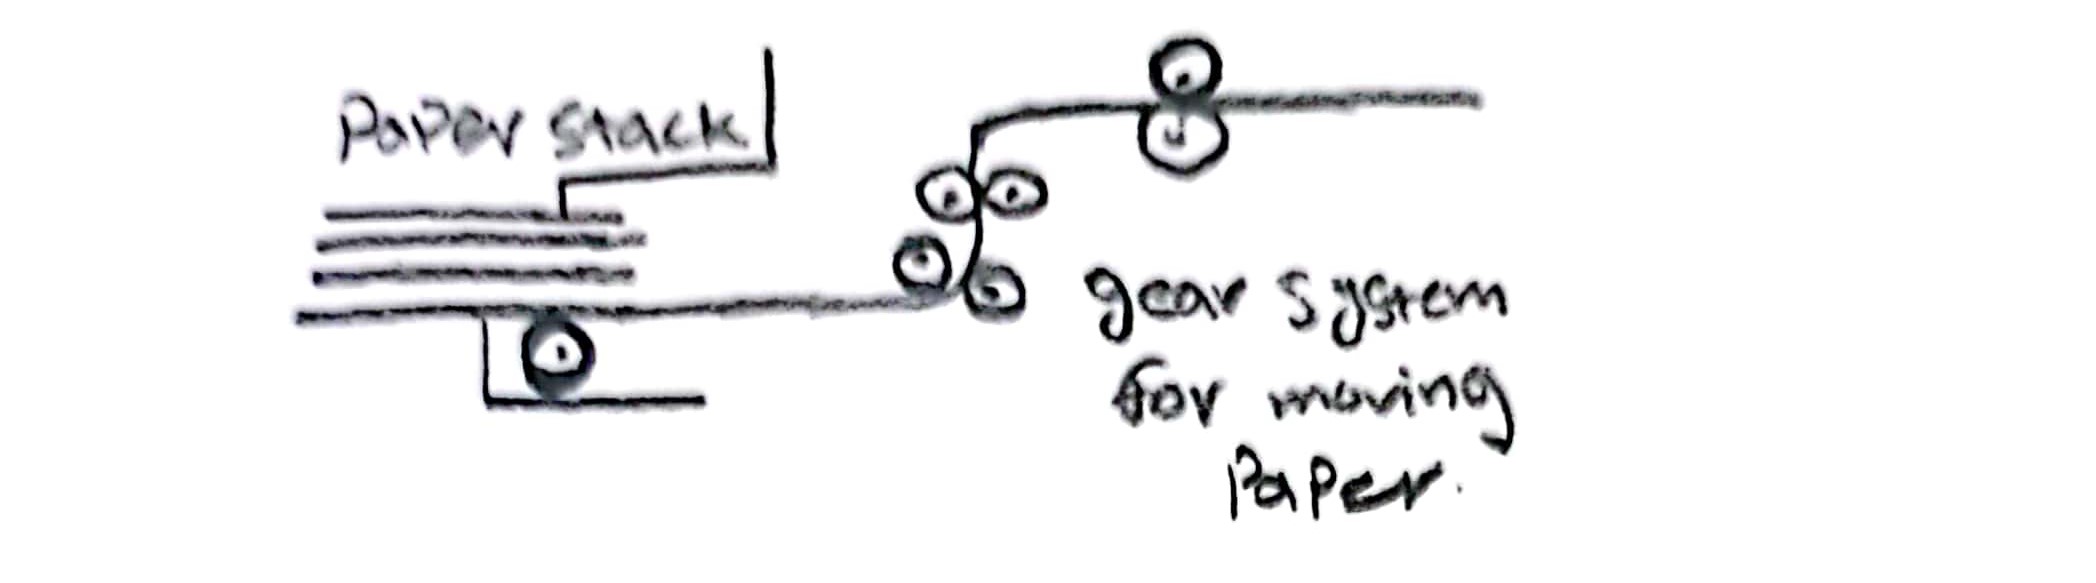 Paper stack
gear system
for moving
Paper.